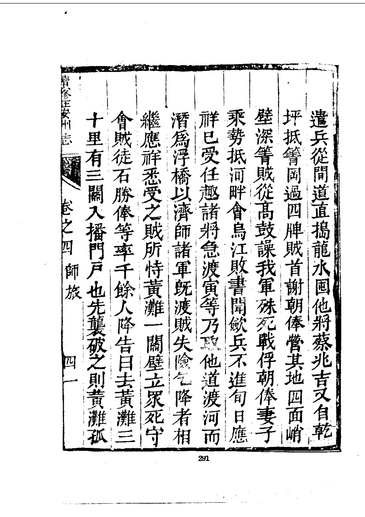 遣兵從間道直搗龍水囤他將蔡兆吉又自乾
坪抵箐岡過四牌賊首謝朝俸營其地四面峭
壁深箐賊從高鼓譟我軍殊死戰俘朝俸妻子
乘勢抵河畔會烏江敗書聞斂兵不進旬日應
祥已受任趣諸將急渡寅等乃取他道渡河而
潛為浮橋以濟師諸軍既渡賊失險乞降者相
繼應祥悉受之賊所恃黃灘一關壁立眾死守
會賊徒石勝俸等率千餘人降告曰去黃灘三
十里有三關入播門戶也先襲破之則黃灘孤
續修正安州志
卷之四 師旅
四一
291